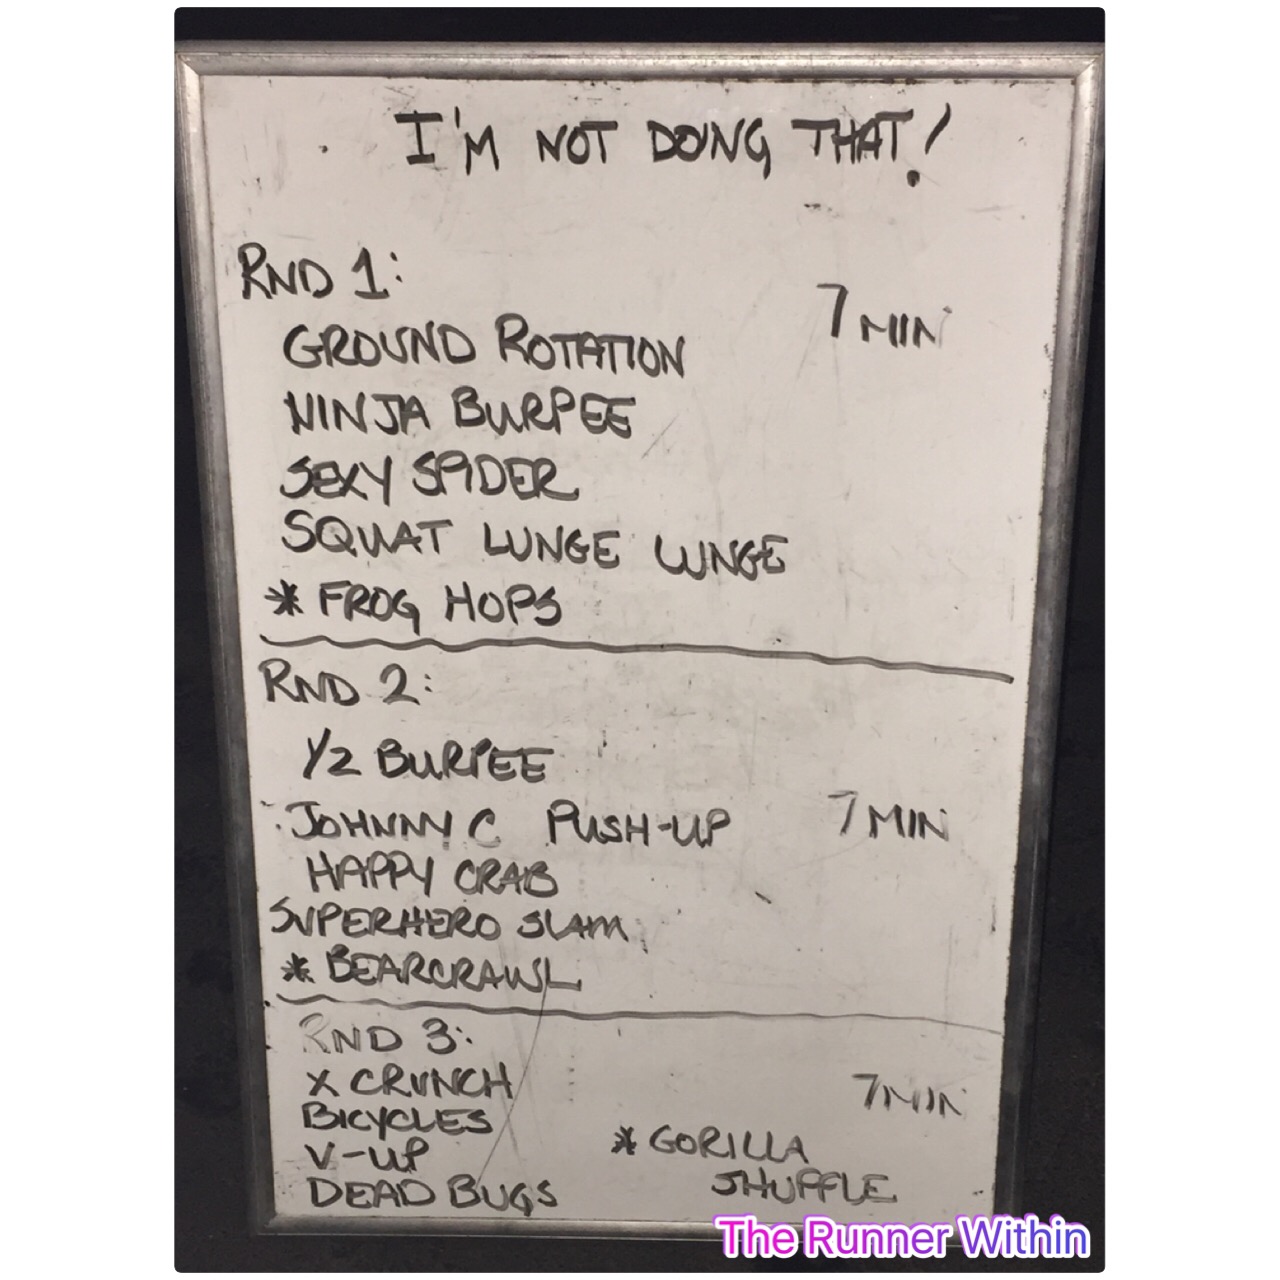 I'M NOT DOING THAT!
RND 1:
7 MIN
GROUND ROTATION
NINJA BURPEE
SEXY SPIDER
SQUAT LUNGE LUNGE
* FROG HOPS
RND 2:
1/2 BURPEE
JOHNNY C PUSH-UP
7 MIN
HAPPY CRAB
SUPERHERO SLAM
* BEARCRAWL
RND 3:
X CRUNCH
7 MIN
BICYCLES
V-UP
DEAD BUGS
* GORILLA
SHUFFLE
The Runner Within